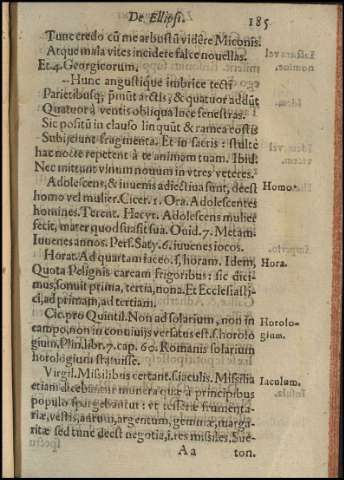 De Ellipsi. 185
Tunc credo cũ me arbustũ vidêre Miconis.
Atque mala vites incidere falce novellas.
Et.4.Georgicorum.
--Hunc angustique imbrice tecti
Parietibusq; p̃mũt arctis, & quatuor addũt
Quatuor à ventis obliqua luce fenestras.
Sic positũ in clauso linquũt & ramea costis
Subijciunt fragmenta. Et in sacris: stulte
hac nocte repetent à te animam tuam. Ibid.
Nec mittunt vinum novum in vtres veteres.
Adolescens, & iuvenis adiectiva sunt, deest
homo vel mulier. Cicer. 1. Ora. Adolescentes
homines. Terent. Hecyr. Adolescens mulier
fecit, mater quod suasit sua. Ouid. 7. Metam.
Iuuenes annos. Pers. Saty. 6. iuuenes iocos.
Horat. Ad quartam iaceo. s, horam. Idem,
Quota Pelignis caream frigoribus: sic dici-
mus, sonuit prima, tertia, nona. Et Ecclesiasti-
ci, ad primam, ad tertiam.
Cic. pro Quintil. Non ad solarium, non in
campo, non in conviuijs versatus est. s. horolo
gium. Plin. libr. 7. cap. 60. Romanis solarium
horologium statuisse.
Virgil. Missilibus certant. s. iaculis. Missilia
etiam dicebantur munera quæ à principibus
populo spargebantur: vt tesseræ frumenta-
riæ, vestis, aurum, argentum, gemmæ, marga-
ritæ sed tunc deest negotia, i. res missiles. Sue-
Aa ton.
Homo.
Hora.
Horolo-
gium.
Iaculum.